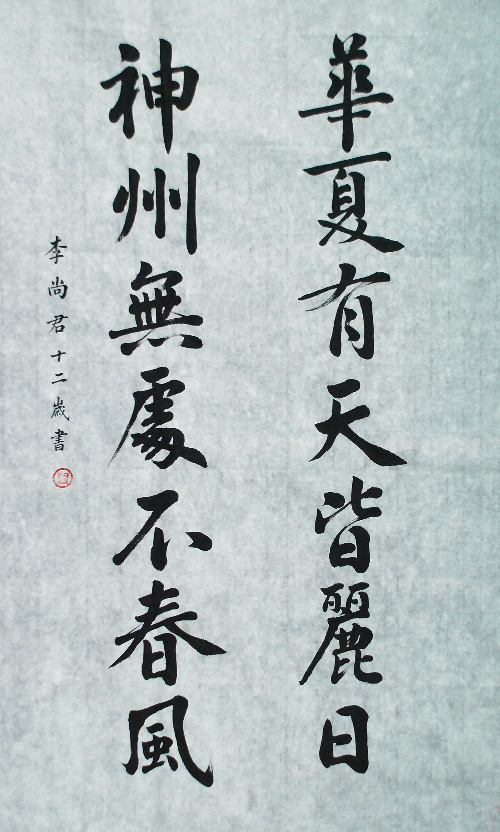 華夏有天皆麗日
神州無處不春風
李尚君十二歲書